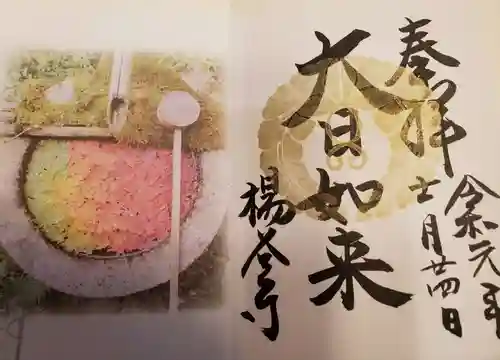 奉拝
令和元年
十一月廿四日
大日如来
楊谷寺